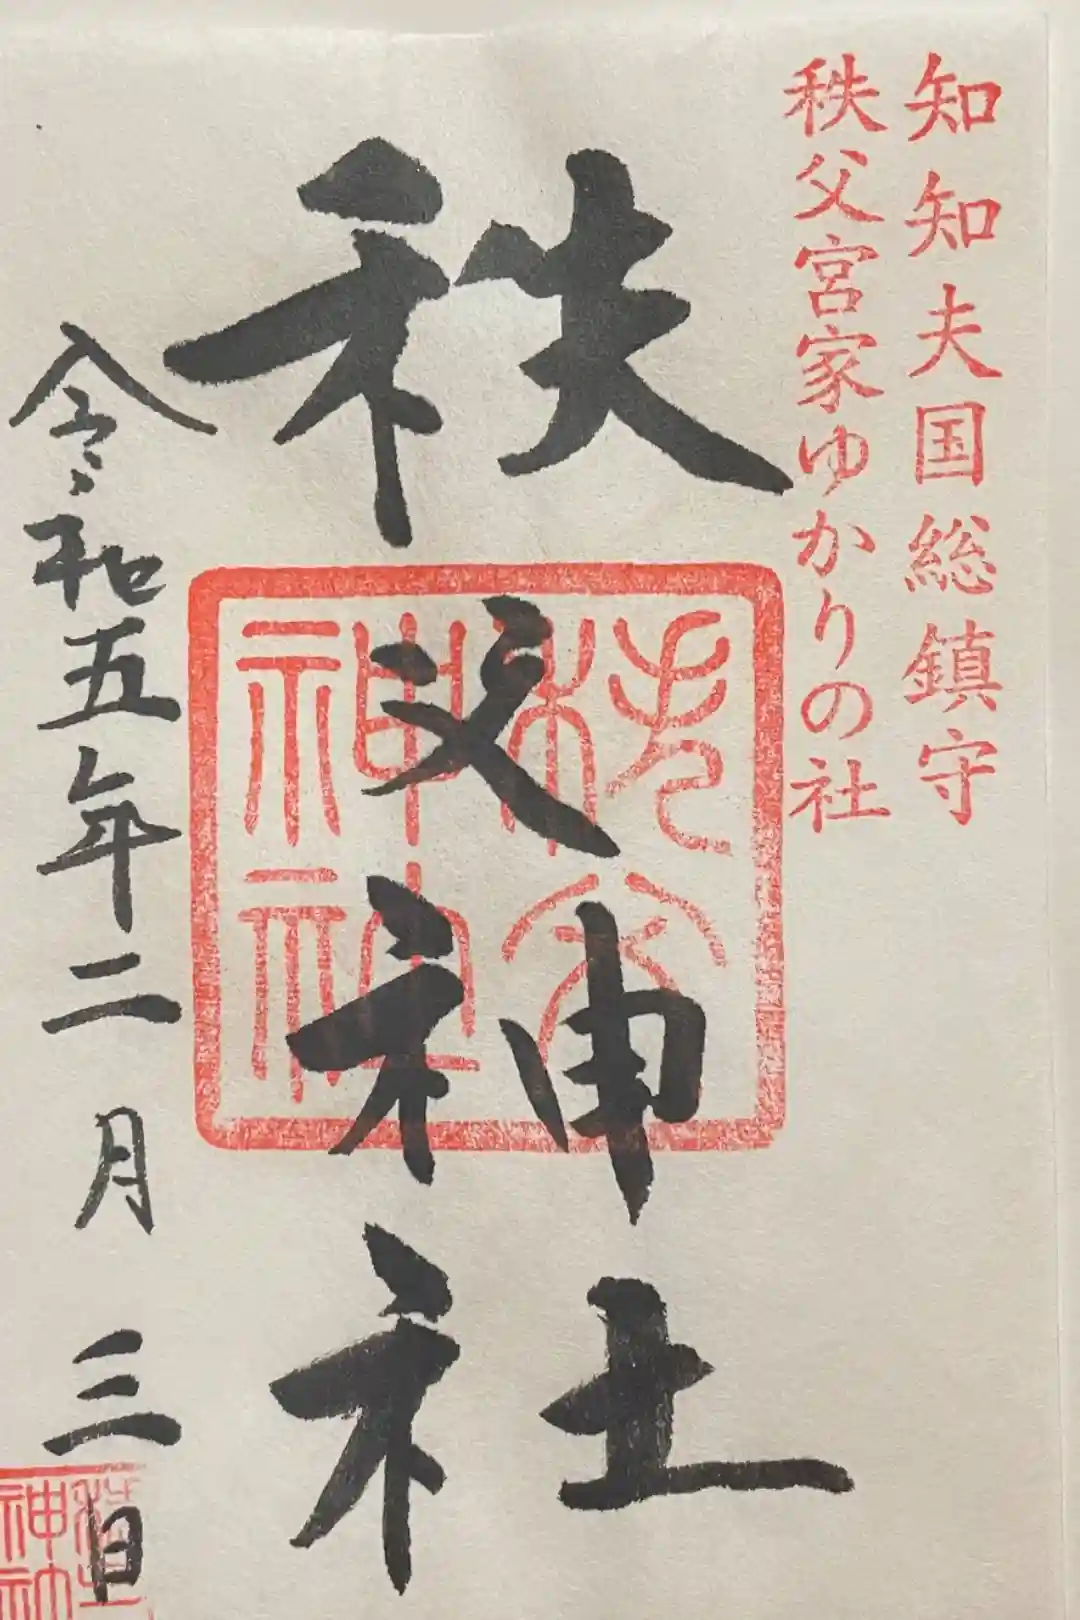 知知夫国総鎮守
秩父宮家ゆかりの社
秩父神社
秩父神社
令和五年二月三日